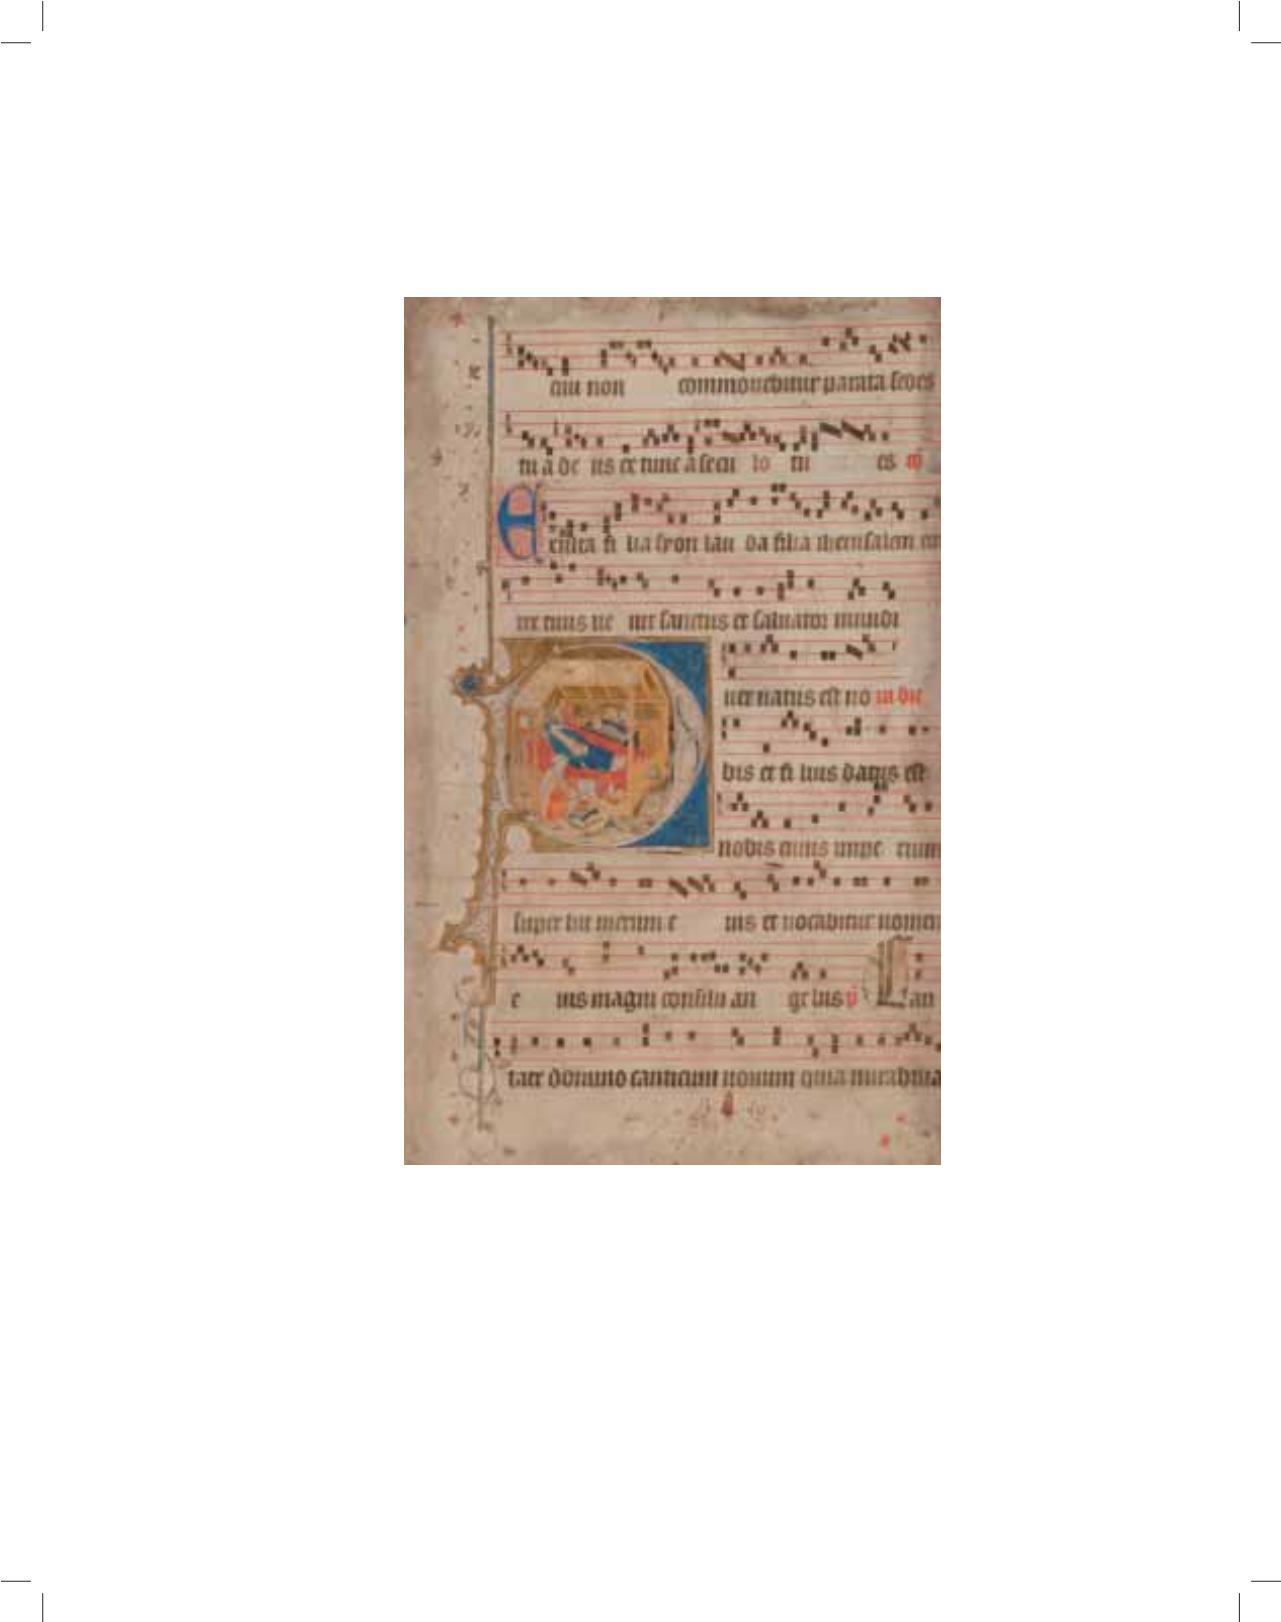 qui non commouebitur parata sedes
tu a de us ex tunc a secu lo tu es
Exulta fi lia syon lau da filia iherusalem
rex tuus ue nit sanctus et saluator mundi
Puer natus est no in die
bis et fi lius datus est
nobis cuius impe rium
super hu merum e ius et uocabitur nomen
e ius magni consilii an ge lus Can
tate domino canticum nouum quia mirabilia